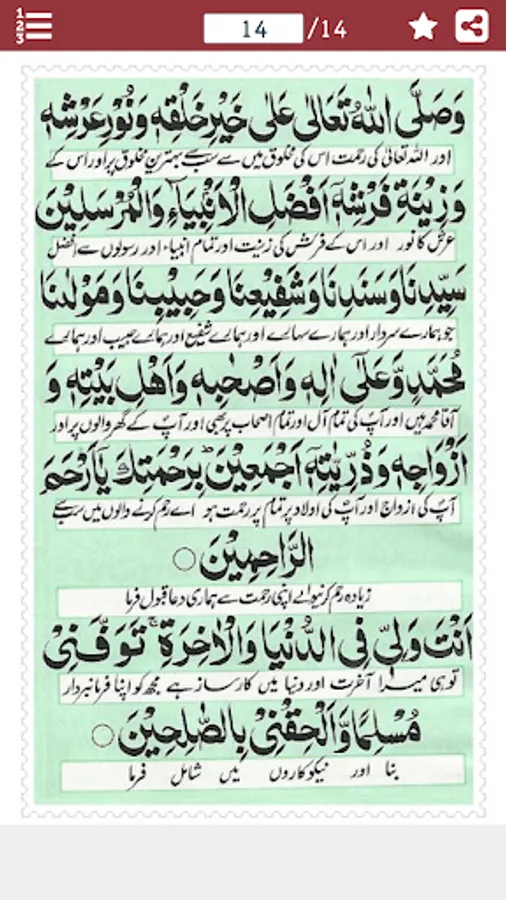 1
2
3
14 /14
وَصَلَّى اللّٰهُ تَعَالٰى عَلٰى خَيْرِ خَلْقِهٖ وَنُوْرِ عَرْشِهٖ
اور اللہ تعالیٰ کی رحمت اس کی مخلوق میں سے سب سے بہترین مخلوق پر اور اس کے
وَزِيْنَةِ فَرْشِهٖٓ اَفْضَلِ الْاَنْبِيَآءِ وَالْمُرْسَلِيْنَ
عرش کا نور اور اس کے فرش کی زینت اور تمام انبیاء اور رسولوں سے افضل
سَيِّدِنَا وَسَنَدِنَا وَشَفِيْعِنَا وَحَبِيْبِنَا وَمَوْلٰنَا
جو ہمارے سردار اور ہمارے سہارے اور ہمارے شفیع اور ہمارے حبیب اور ہمارے
مُحَمَّدٍ وَّعَلٰٓى اٰلِهٖ وَاَصْحٰبِهٖ وَاَهْلِ بَيْتِهٖ وَ
آقا محمد ہیں اور آپؐ کی تمام آل اور تمام اصحاب پر بھی اور آپؐ کے گھر والوں پر اور
اَزْوَاجِهٖ وَذُرِّيّٰتِهٖٓ اَجْمَعِيْنَ ؕ بِرَحْمَتِكَ يَآ اَرْحَمَ
آپؐ کی ازواج اور آپؐ کی اولاد پر تمام پر رحمت ہو اے رحم کرنے والوں میں سب سے
الرَّاحِمِيْنَ ○
زیادہ رحم کرنیوالے اپنی رحمت سے ہماری دعا قبول فرما
اَنْتَ وَلِيّٖ فِى الدُّنْيَا وَالْاٰخِرَةِ ۚ تَوَفَّنِىْ
تو ہی میرا آخرت اور دنیا میں کارساز ہے مجھ کو اپنا فرمانبردار
مُسْلِمًا وَّاَلْحِقْنِىْ بِالصّٰلِحِيْنَ ○
بنا اور نیکوکاروں میں شامل فرما